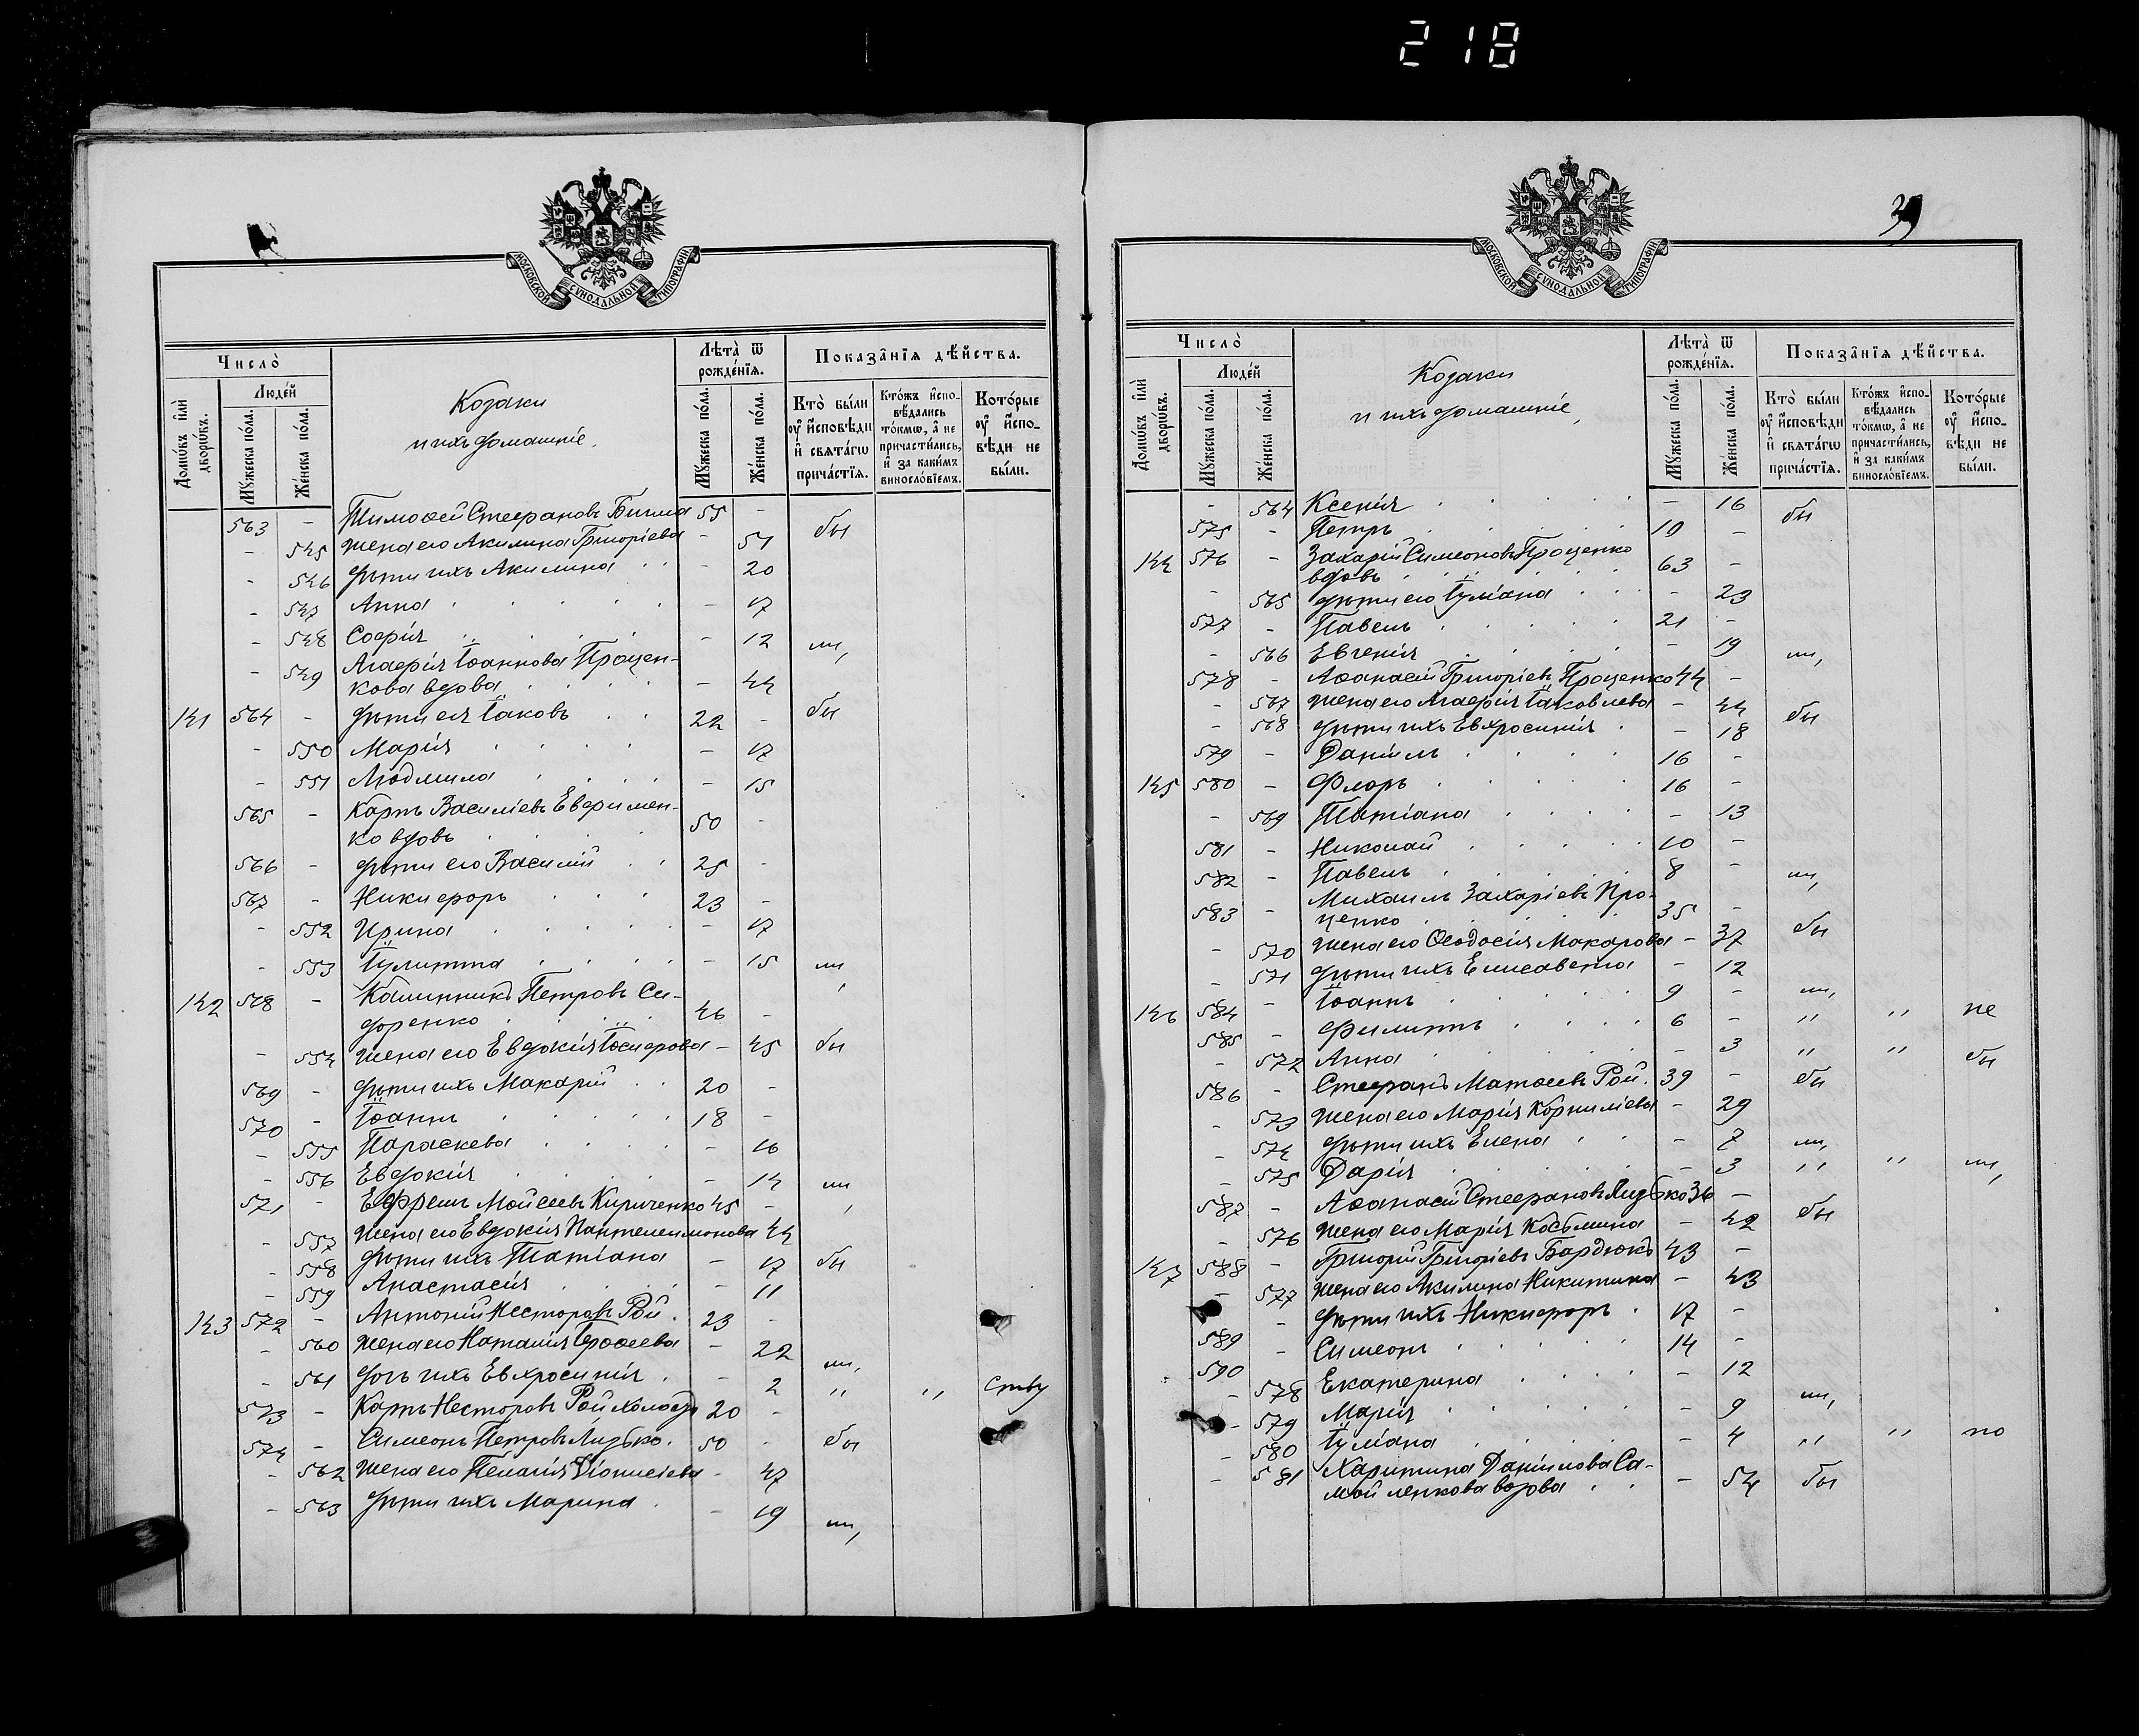 218
МОСКОВСКОЙ СУНОДАЛЬНОЙ ТИПОГРАФІИ
Число̀
Людей
Домѡвъ и҆лѝ дворѡвъ.
Мꙋжеска по́ла.
Же́нска по́ла.
Козаки
и ихъ домашніе.
Лѣта̀ ѿ рожде́нїѧ.
Мꙋжеска по́ла.
Же́нска по́ла.
Показа̂нїѧ дѣ́йства.
Кто̀ бы́ли оу҆ и҆сповѣди и҆ свѧта́гѡ прича́стїѧ.
Кто́жъ и҆сповѣ́дались то́кмѡ, а҆ не причасти́лись, и҆ за каки́мъ винослоⷡ́їемъ.
Кото́рые оу҆ и҆сповѣди не бы́ли.
563 - Тимоѳей Стефановъ Бигма 55 - бы
- 545 жена его Акилина Григоріева - 51
- 546 дѣти ихъ Акилина - 20
- 547 Анна - 17
- 548 София - 12 ли,
- 549 Агафія Іоаннова Процен-
кова вдова - 44
141 564 - дѣти ея Іаковъ 22 - бы
- 550 Марія - 17
- 551 Людмила - 15
565 - Карпъ Василіевъ Евфимен-
ко вдовъ 50 -
566 - дѣти его Василій 25 -
567 - Никифоръ 23 -
- 552 Ирина - 17
- 553 Іулитта - 15 ли,
142 568 - Каллиникъ Петровъ Си-
доренко 46 -
- 554 жена его Евдокія Іосифова - 45 бы
569 - дѣти ихъ Макарій 20 -
570 - Іоаннъ 18 -
- 555 Параскева - 16
- 556 Евдокія - 14 ли,
571 - Ефремъ Мойсеевъ Кириченко 45 -
- 557 жена его Евдокія Пантелеимонова 44
- 558 дѣти ихъ Татіана - 17 бы
- 559 Анастасія - 11
143 572 - Антоній Несторовъ Рой 23 -
- 560 жена его Наталія Іероѳеева - 22 ли,
- 561 дочь ихъ Евхросинія - 2 " "
573 - Карпъ Несторовъ Рой холостъ 20 -
574 - Симеонъ Петровъ Лидько 50 - бы
- 562 жена его Пелагія Діонисіева - 47
- 563 дѣти ихъ Марина - 19 ли,
МОСКОВСКОЙ СУНОДАЛЬНОЙ ТИПОГРАФІИ
Число̀
Людей
Домѡвъ и҆лѝ дворѡвъ.
Мꙋжеска по́ла.
Же́нска по́ла.
Козаки
и ихъ домашніе,
Лѣта̀ ѿ рожде́нїѧ.
Мꙋжеска по́ла.
Же́нска по́ла.
Показа̂нїѧ дѣ́йства.
Кто̀ бы́ли оу҆ и҆сповѣди и҆ свѧта́гѡ прича́стїѧ.
Кто́жъ и҆сповѣ́дались то́кмѡ, а҆ не причасти́лись, и҆ за каки́мъ винослоⷡ́їемъ.
Кото́рые оу҆ и҆сповѣди не бы́ли.
- 564 Ксенія - 16 бы
575 - Петръ 10 -
144 576 - Захарій Симеоновъ Проценко
вдовъ 63 -
- 565 дѣти его Іуліана - 23
577 - Павелъ 21 -
- 566 Евгенія - 19 ли,
578 - Аѳанасій Григоріевъ Проценко 44 -
- 567 жена его Агафія Іаковлева - 44
- 568 дѣти ихъ Евхросинія - 18 бы
579 - Даніилъ 16 -
145 580 - Флоръ 16 -
- 569 Татіана - 13
581 - Николай 10 -
582 - Павелъ 8 - ли,
583 - Михаилъ Захаріевъ Про-
ценко 35 -
- 570 жена его Ѳеодосія Макарова - 37 бы
- 571 дѣти ихъ Елисавета - 12
146 584 - Іоаннъ 9 - ли,
585 - Филиппъ 6 - " " не
- 572 Анна - 3 " " бы
586 - Стефанъ Матѳеевъ Рой 39 - бы
- 573 жена его Марія Корниліева - 29
- 574 дѣти ихъ Елена - 7 ли,
- 575 Дарія - 3 " " ли,
587 - Аѳанасій Стефановъ Лидько 36 -
- 576 жена его Марія Косьмина - 42 бы
147 588 - Григорій Григоріевъ Бардюкъ 43 -
- 577 жена его Акилина Никитина - 43
- дѣти ихъ Никифоръ 17 -
589 - Симеонъ 14 -
590 - 578 Екатерина - 12
- 579 Марія - 9 ли,
- 580 Іуліана - 4 " " по
- 581 Харитина Даніилова Са-
мойленкова вдова - 54 бы